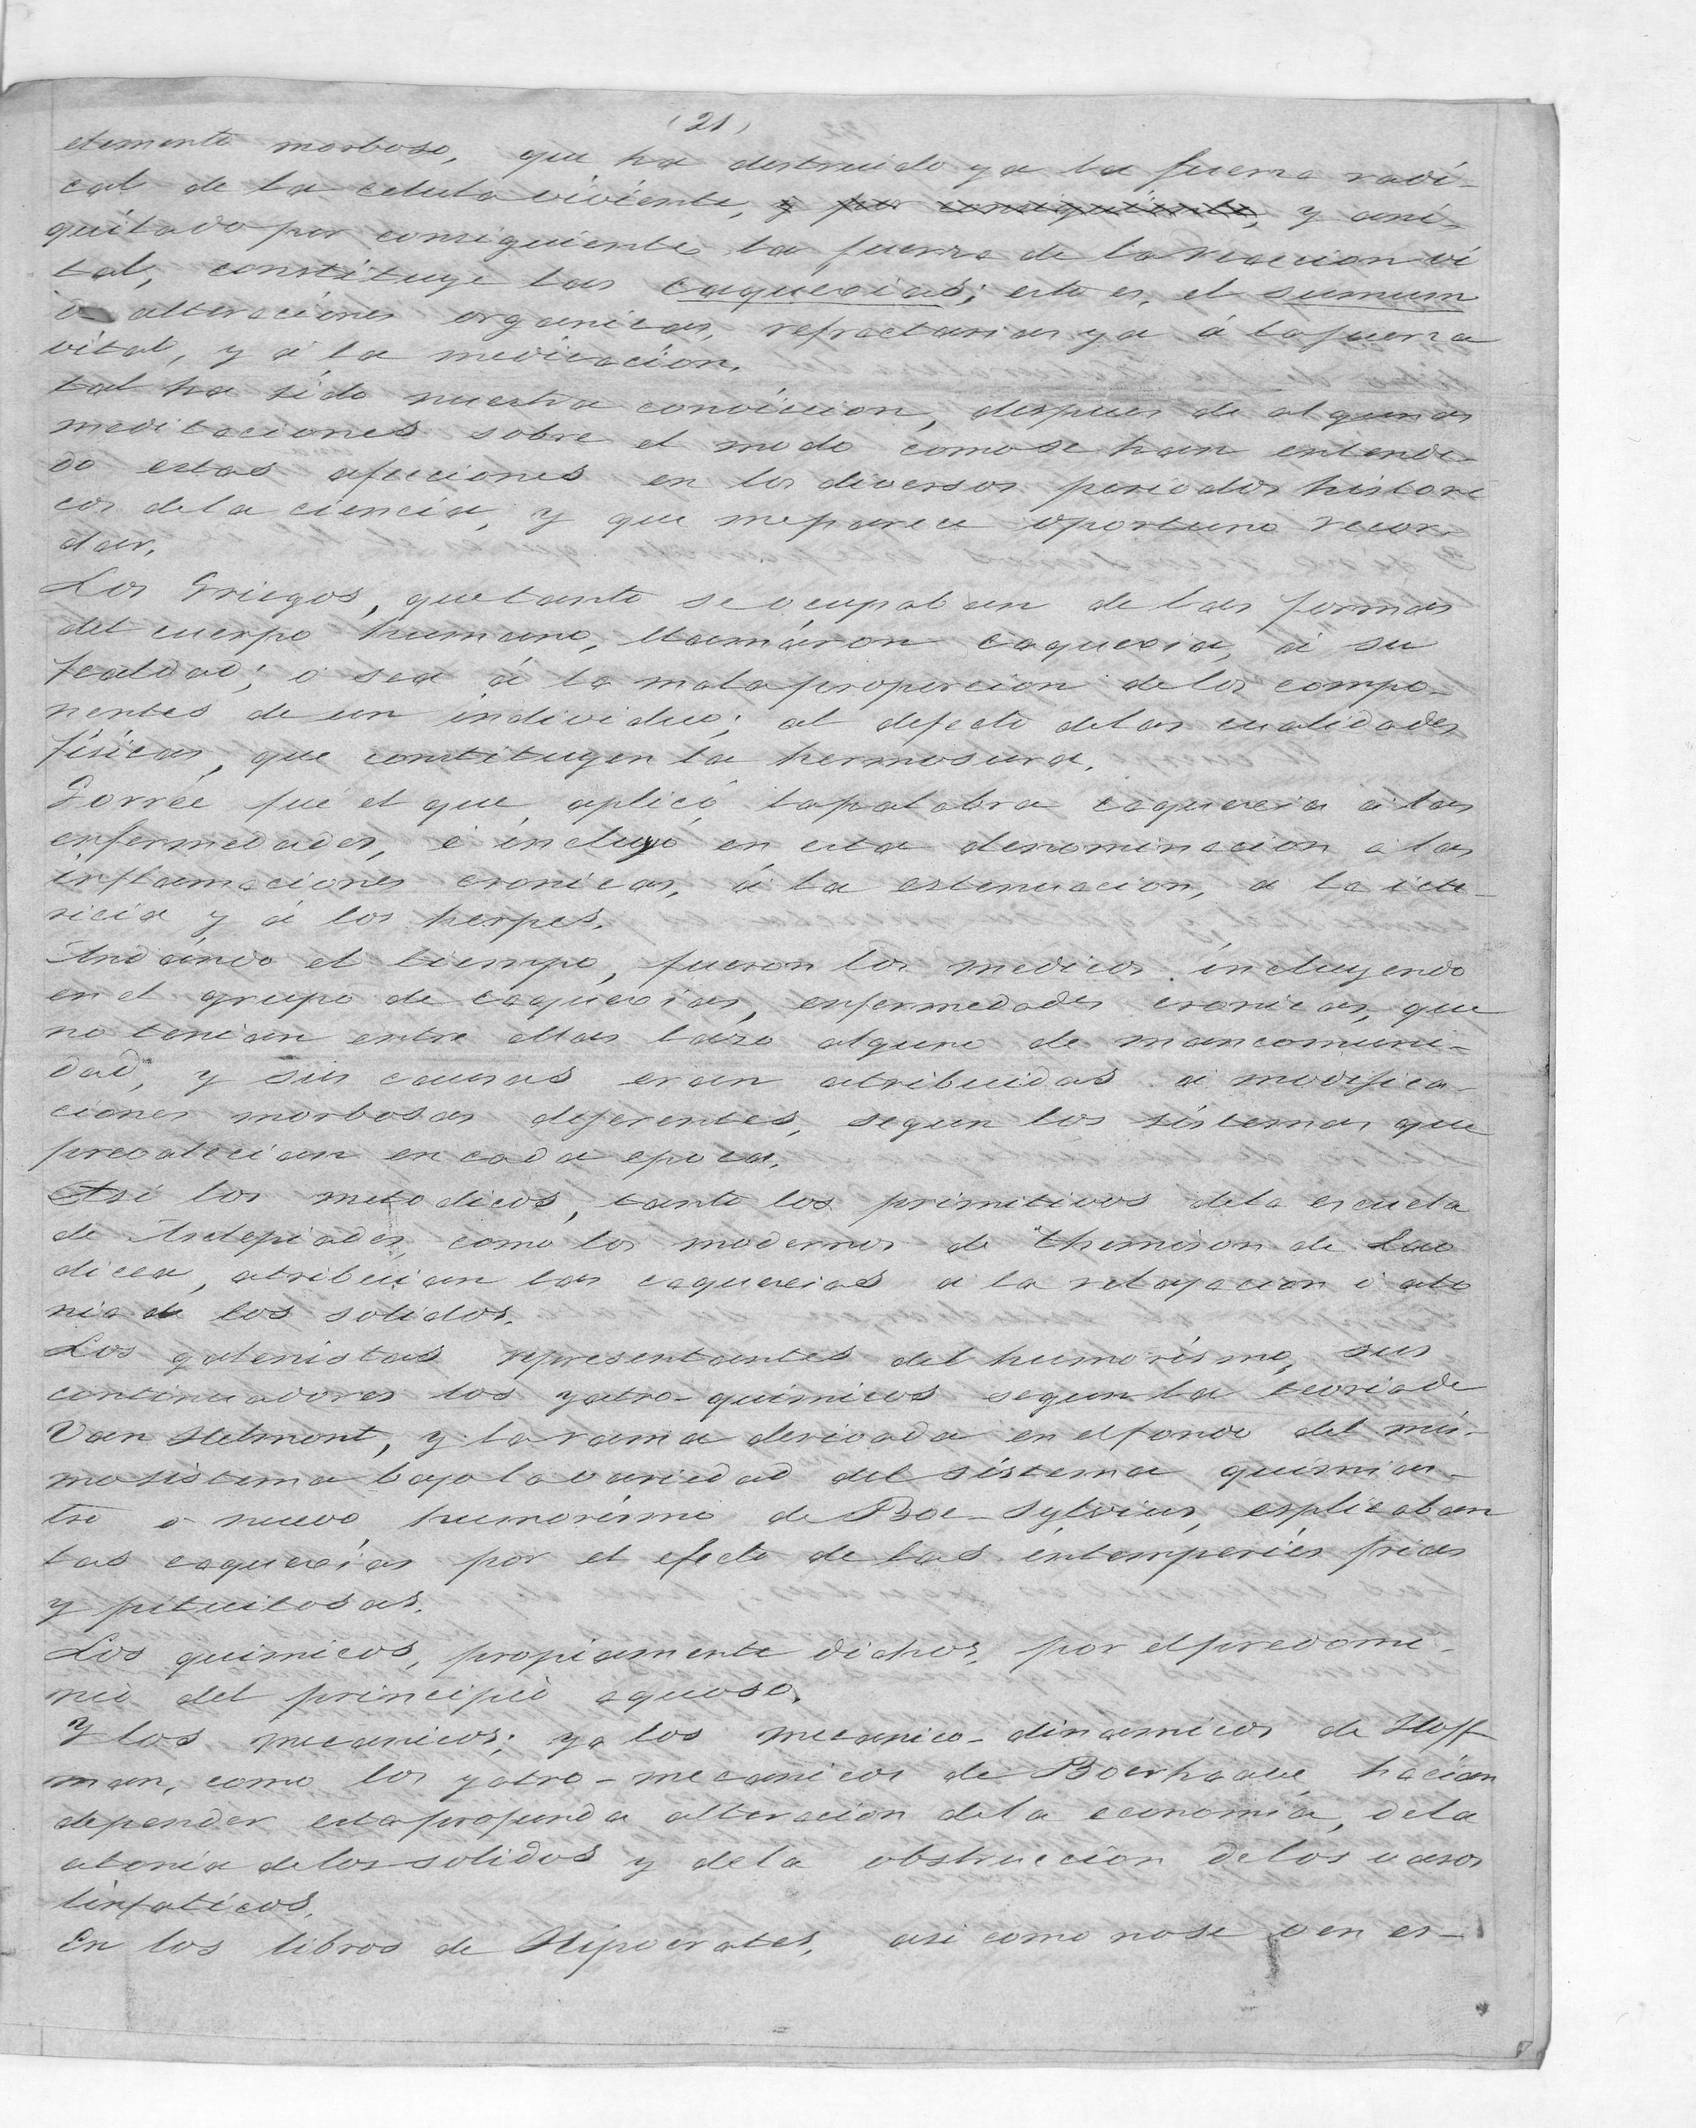 (21)
elemento morboso, que ha destruido ya la fuerza radi-
cal de la celula viviente, y por consiguiente, y ani-
quilado por consiguiente la fuerza de la reaccion vi
tal, constituye las caquexias; esto es, el sumum
de alteraciones organicas, refractarias ya á la fuerza
vital, y á la medicacion.
tal ha sido nuestra conviccion, despues de algunas
meditaciones sobre el modo como se han entendi-
do estas afecciones en los diversos periodos histori
cos de la ciencia, y que me parece oportuno recor-
dar.
Los Griegos, que tanto se ocupaban de las formas
del cuerpo humano, llamáron caquexia, á su
fealdad; ó sea á la mala proporcion de los compo-
nentes de un individuo; al defecto de las cualidades
fisicas, que constituyen la hermosura.
Gorrée fué el que aplicó la palabra caquexia a las
enfermedades, é incluyó en esta denominacion a las
inflamaciones cronicas, á la estenuacion, a la icte-
ricia y á los herpes.
Andando el tiempo, fueron los medicos incluyendo
en el grupo de caquexias, enfermedades cronicas, que
no tenian entre ellas lazo alguno de mancomuni-
dad, y sus causas eran atribuidas a modifica-
ciones morbosas diferentes, segun los sistemas que
prevalecian en cada epoca.
Asi los metodicos, tanto los primitivos de la escuela
de Asclepiades, como los modernos de Themison de Lao
dicea, atribuian las caquexias a la relajacion ó ato
nia de los solidos.
Los galenistas representantes del humorismo, sus
continuadores los yatro-quimicos segun la teoria de
Van Helmont, y la rama derivada en el fondo del mis-
mo sistema bajo la variedad del sistema quimias-
tro o nuevo humorismo de Boe-Sylvius, esplicaban
las caquexias por el efecto de las intemperies frias
y pituitosas.
Los quimicos, propiamente dichos, por el predomi-
nio del principio aquoso.
Y los mecanicos; ya los mecanico-dinamicos de Hoff
man, como los yatro-mecanicos de Boerhaave hacian
depender esta profunda alteracion de la economia, de la
atonia de los solidos y de la obstruccion de los vasos
linfaticos.
En los libros de Hipocrates, asi como no se ven es-